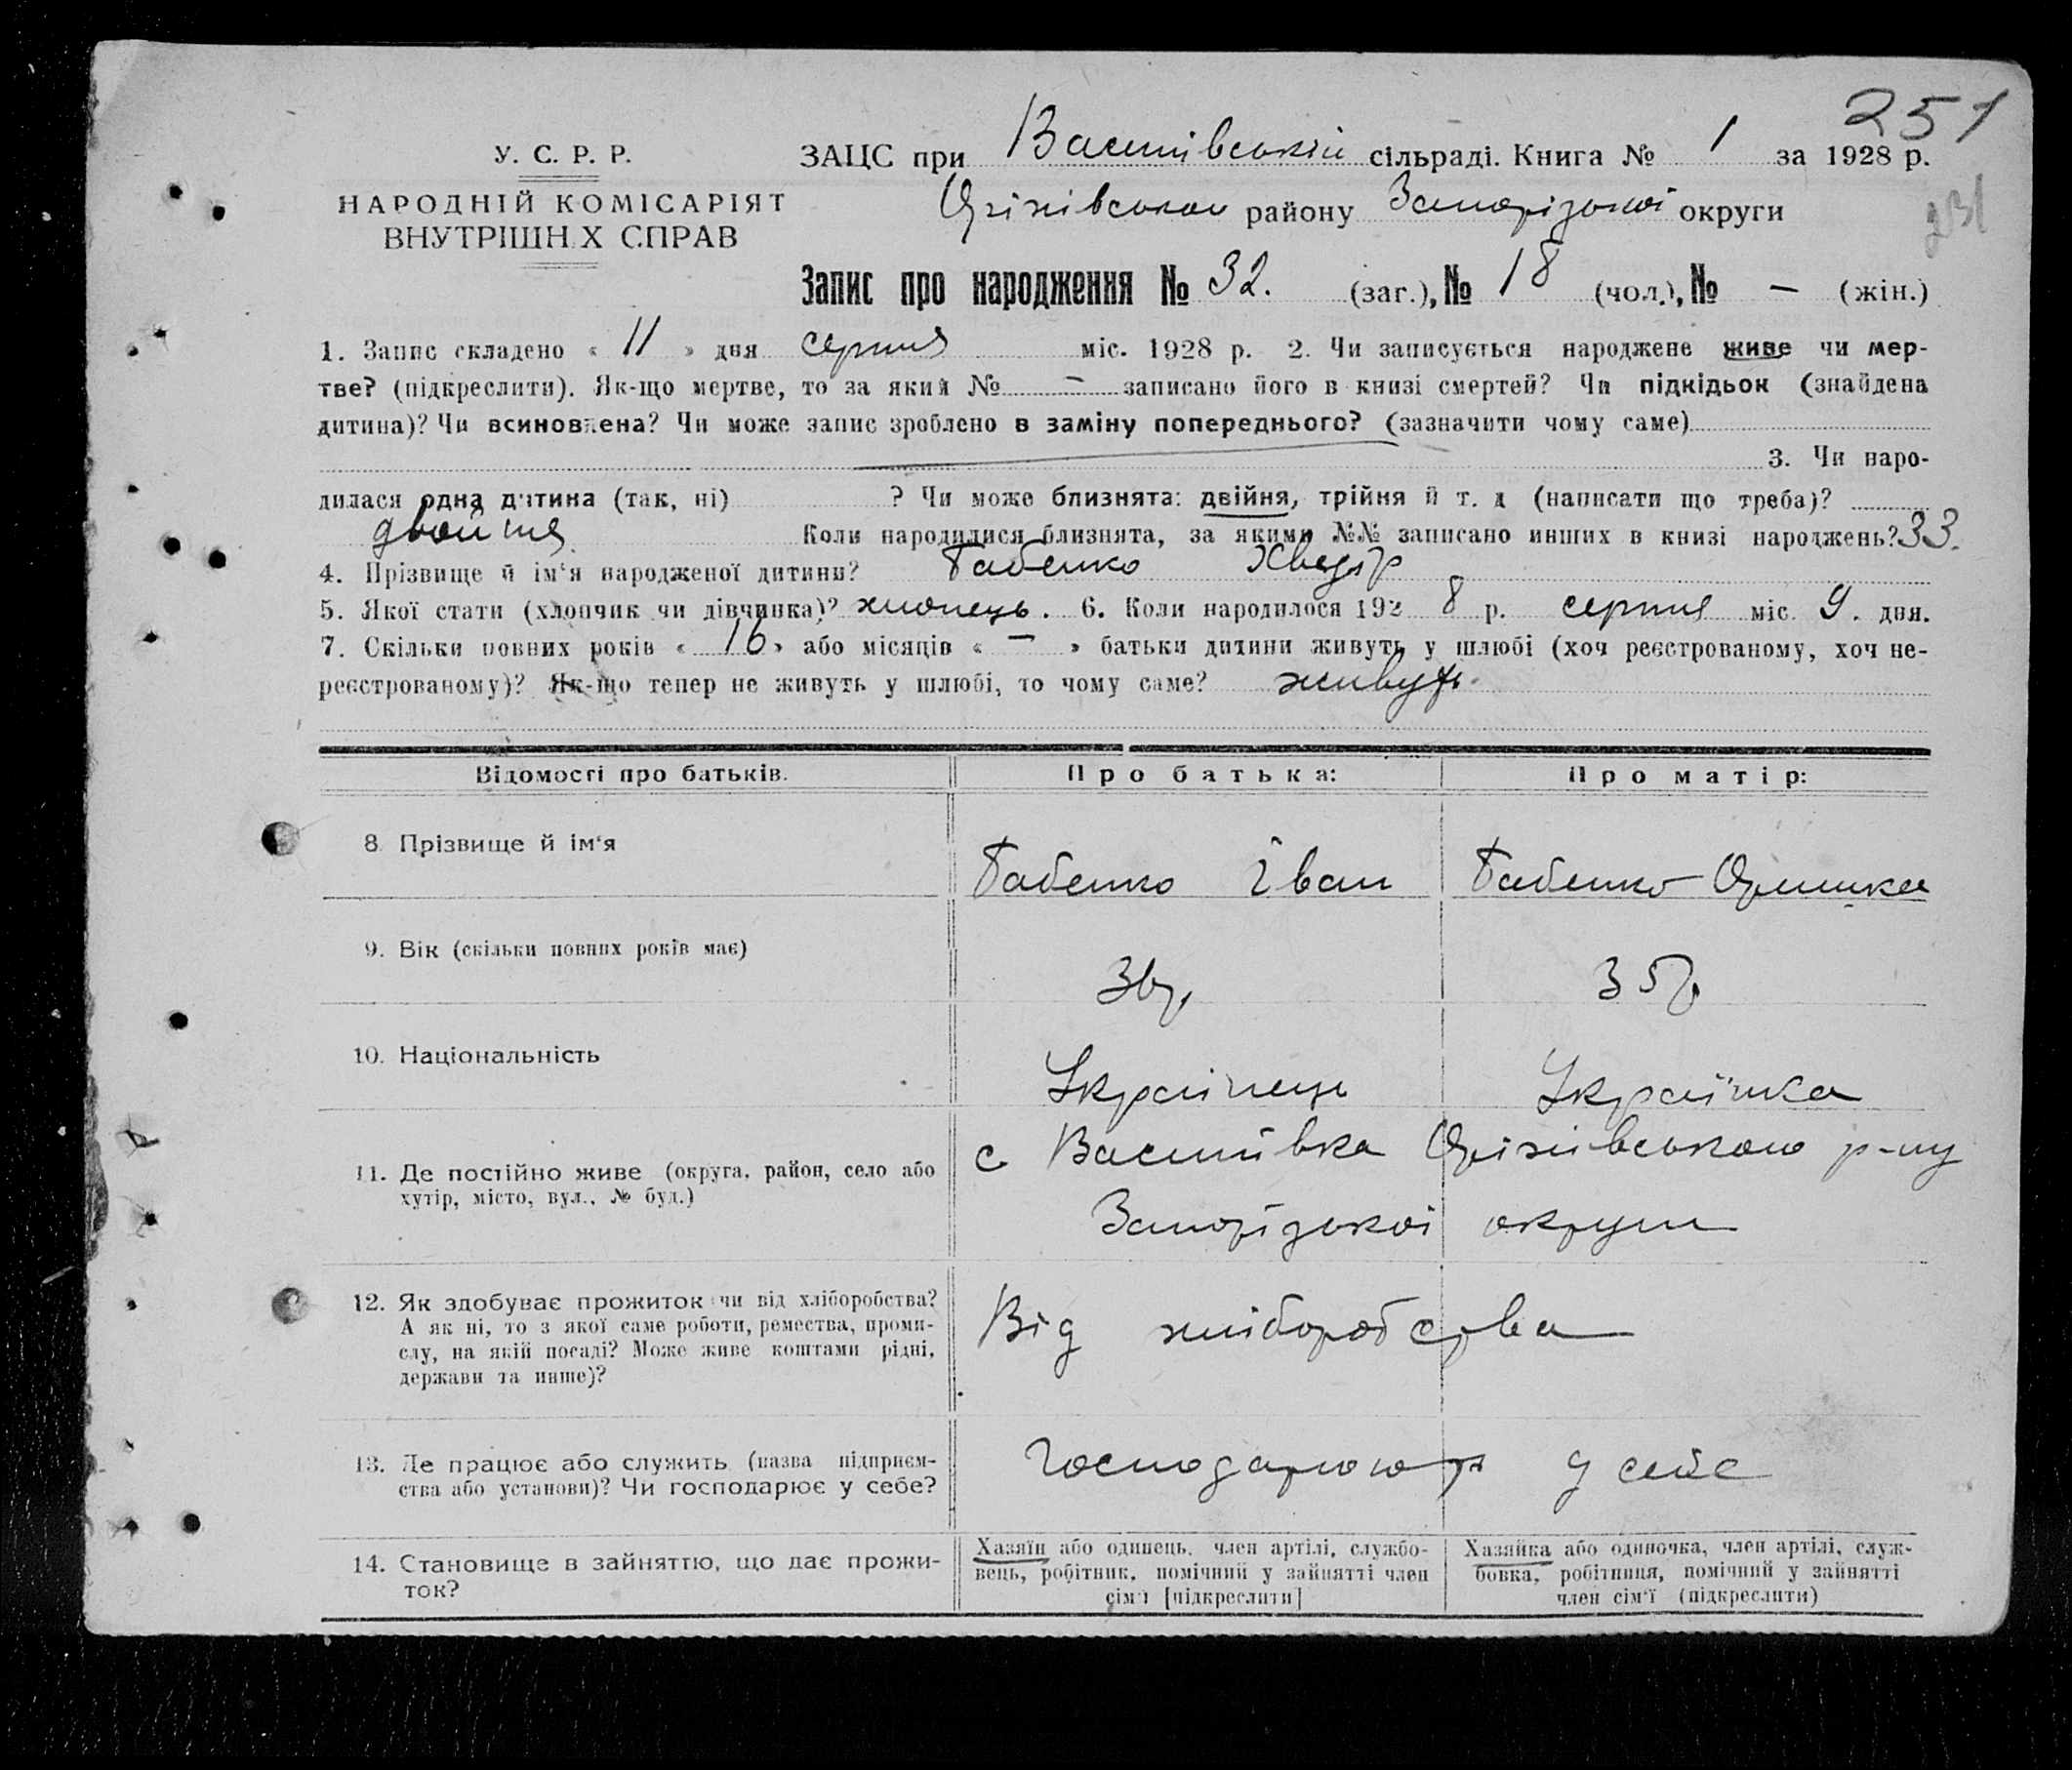 251
У. С. Р. Р.
ЗАЦС при Василівській сільраді. Книга № 1 за 1928 р.
НАРОДНІЙ КОМІСАРІЯТ
ВНУТРІШН Х СПРАВ
Оріхівського району Запорізької округи
231
Запис про народження № 32. (заг.), № 18 (чол.), № — (жін.)
1. Запис складено « 11 » дня серпня міс. 1928 р. 2. Чи записується народжене живе чи мер-
тве? (підкреслити). Як-що мертве, то за який № — записано його в книзі смертей? Чи підкідьок (знайдена
дитина)? Чи всиновлена? Чи може запис зроблено в заміну попереднього? (зазначити чому саме)
3. Чи наро-
дилася одна дитина (так, ні) ? Чи може близнята: двійня, трійня й т. д (написати що треба)?
двойня. Коли народилися близнята, за якими №№ записано инших в книзі народжень? 33.
4. Прізвище й ім'я народженої дитини? Бабенко Хведір
5. Якої стати (хлопчик чи дівчинка)? хлопець. 6. Коли народилося 192 8 р. серпня міс. 9. дня.
7. Скільки повних років « 16 » або місяців « — » батьки дитини живуть у шлюбі (хоч реєстрованому, хоч не-
реєстрованому)? Як-що тепер не живуть у шлюбі, то чому саме? живуть.
Відомості про батьків. Про батька: Про матір:
8. Прізвище й ім'я Бабенко Іван Бабенко Оришка
9. Вік (скільки повних років має) 36 р. 35 р.
10. Національність Українець Українка
11. Де постійно живе (округа, район, село або
хутір, місто, вул., № буд.)
с Василівка Оріхівського р-ну
Запорізької округи
12. Як здобуває прожиток чи від хліборобства?
А як ні, то з якої саме роботи, ремества, проми-
слу, на якій посаді? Може живе коштами рідні,
держави та инше)?
Від хліборобства
13. Де працює або служить (назва підприєм-
ства або установи)? Чи господарює у себе?
Господарюють у себе
14. Становище в зайняттю, що дає прожи-
ток?
Хазяїн або одинець, член артілі, службо-
вець, робітник, помічний у зайнятті член
сім'ї [підкреслити]
Хазяйка або одиночка, член артілі, служ-
бовка, робітниця, помічний у зайнятті
член сім'ї (підкреслити)